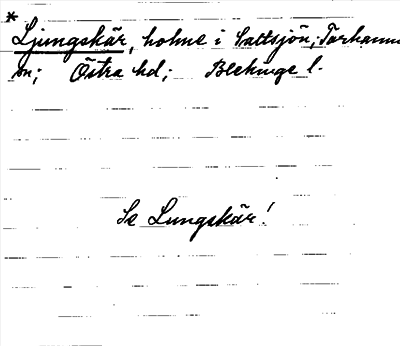 *
Ljungskär, holme i Saltsjön; Torhamns
sn; Östra hd; Blekinge l.
Se Lungskär!